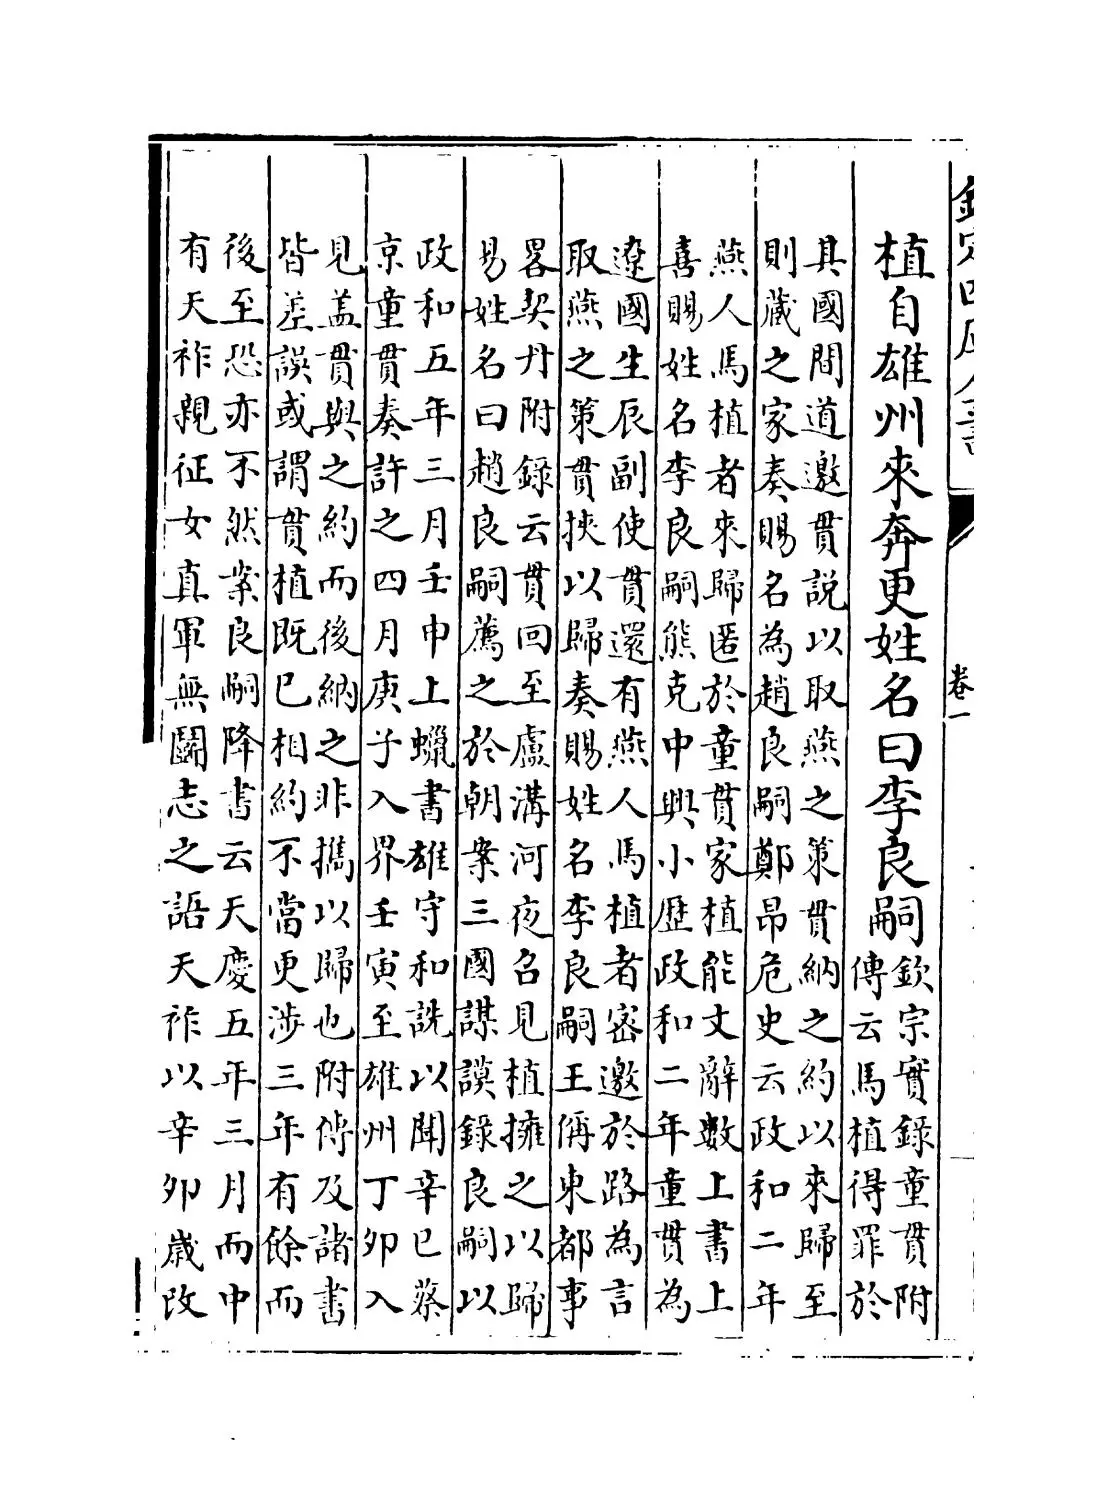 欽定四庫全書
卷一
植自雄州來奔更姓名曰李良嗣
欽宗實錄童貫附
傳云馬植得罪於
具國間道邀貫說以取燕之策貫納之約以來歸至
則藏之家奏賜名為趙良嗣鄭昂危史云政和二年
燕人馬植者來歸匿於童貫家植能文辭數上書上
喜賜姓名李良嗣熊克中興小歷政和二年童貫為
遼國生辰副使貫還有燕人馬植者密邀於路為言
取燕之策貫挾以歸奏賜姓名李良嗣王偁東都事
畧契丹附錄云貫回至盧溝河夜召見植擁之以歸
易姓名曰趙良嗣薦之於朝案三國謀謨錄良嗣以
政和五年三月壬申上蠟書雄守和詵以聞辛巳蔡
京童貫奏許之四月庚子入界壬寅至雄州丁卯入
見盖貫與之約而後納之非攜以歸也附傳及諸書
皆差誤或謂貫植既已相約不當更涉三年有餘而
後至恐亦不然案良嗣降書云天慶五年三月而中
有天祚親征女真軍無鬭志之語天祚以辛卯歲改